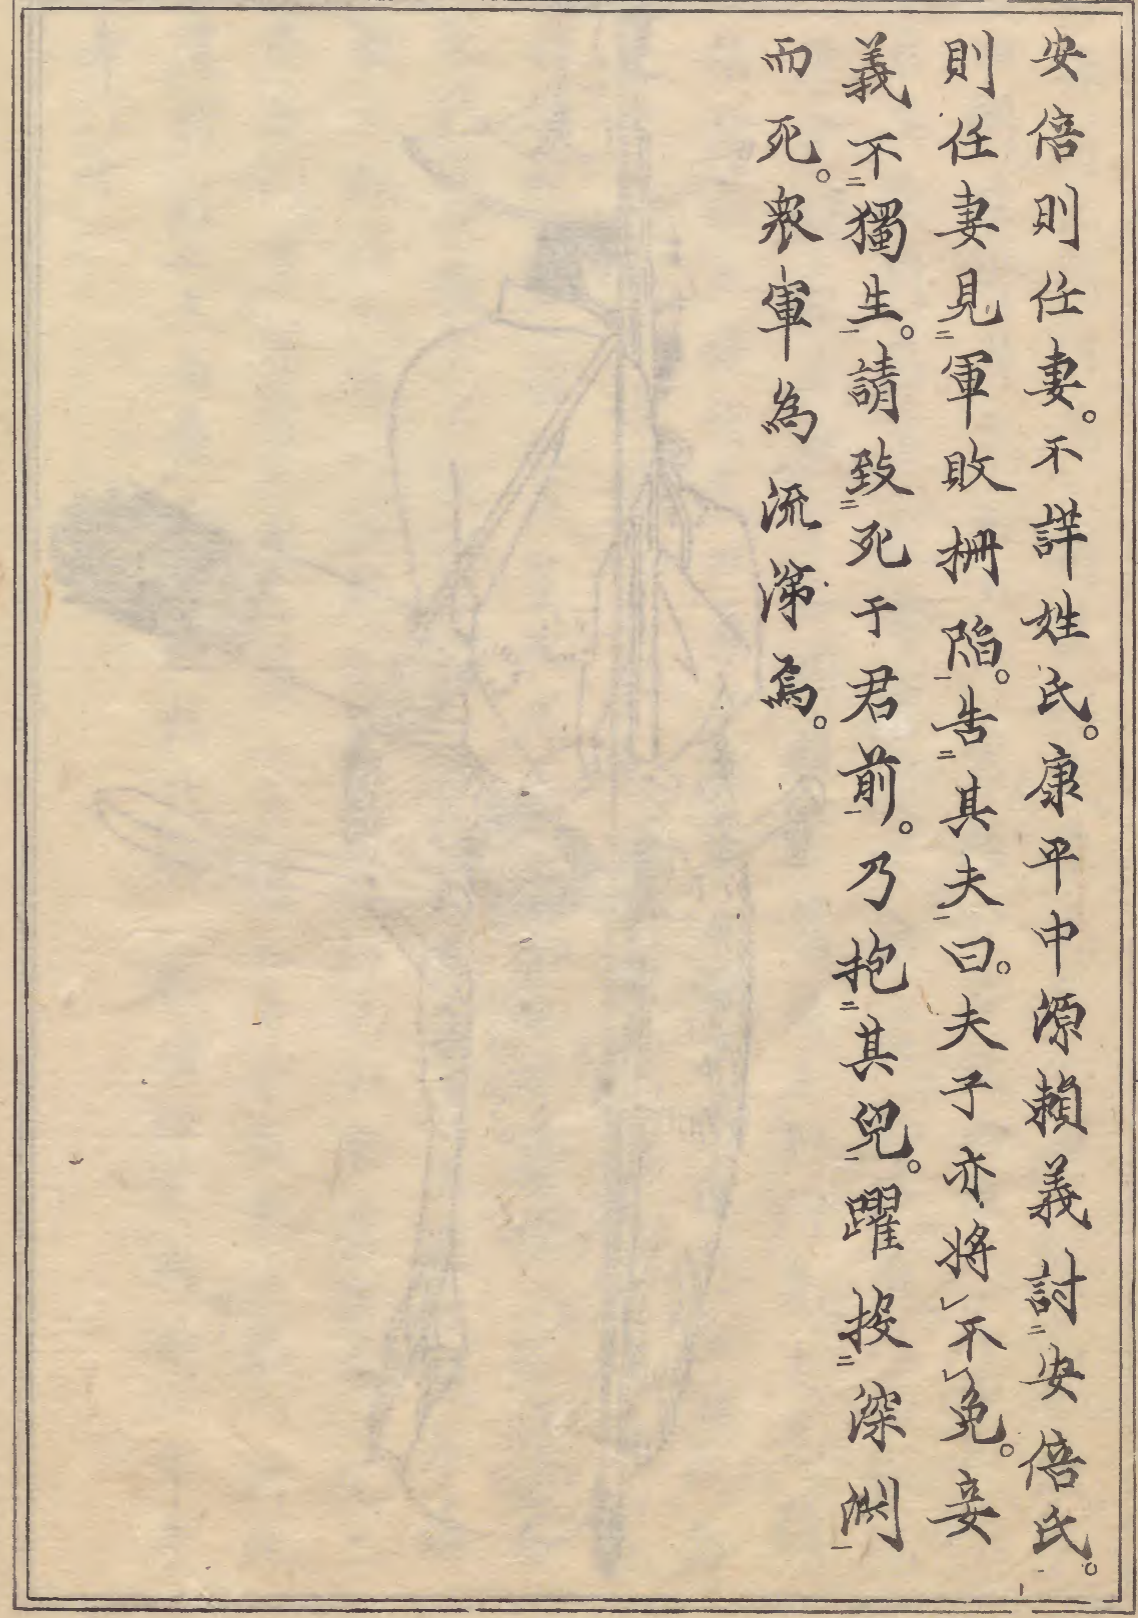 安倍則任妻。不詳姓氏。康平中源賴義討㆓安倍氏。
則任妻見㆓軍敗柵陷㆒。告㆓其夫㆒曰。夫子亦將㆑不㆑免。妾
義不㆓獨生㆒。請致㆓死于君前㆒。乃抱㆓其兒㆒。躍投㆓深淵㆒
而死。衆軍為流涕焉。